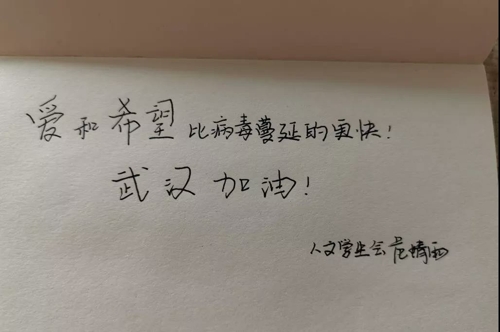 爱和希望比病毒蔓延的更快！
武汉加油！
人文学生会 范婧雨